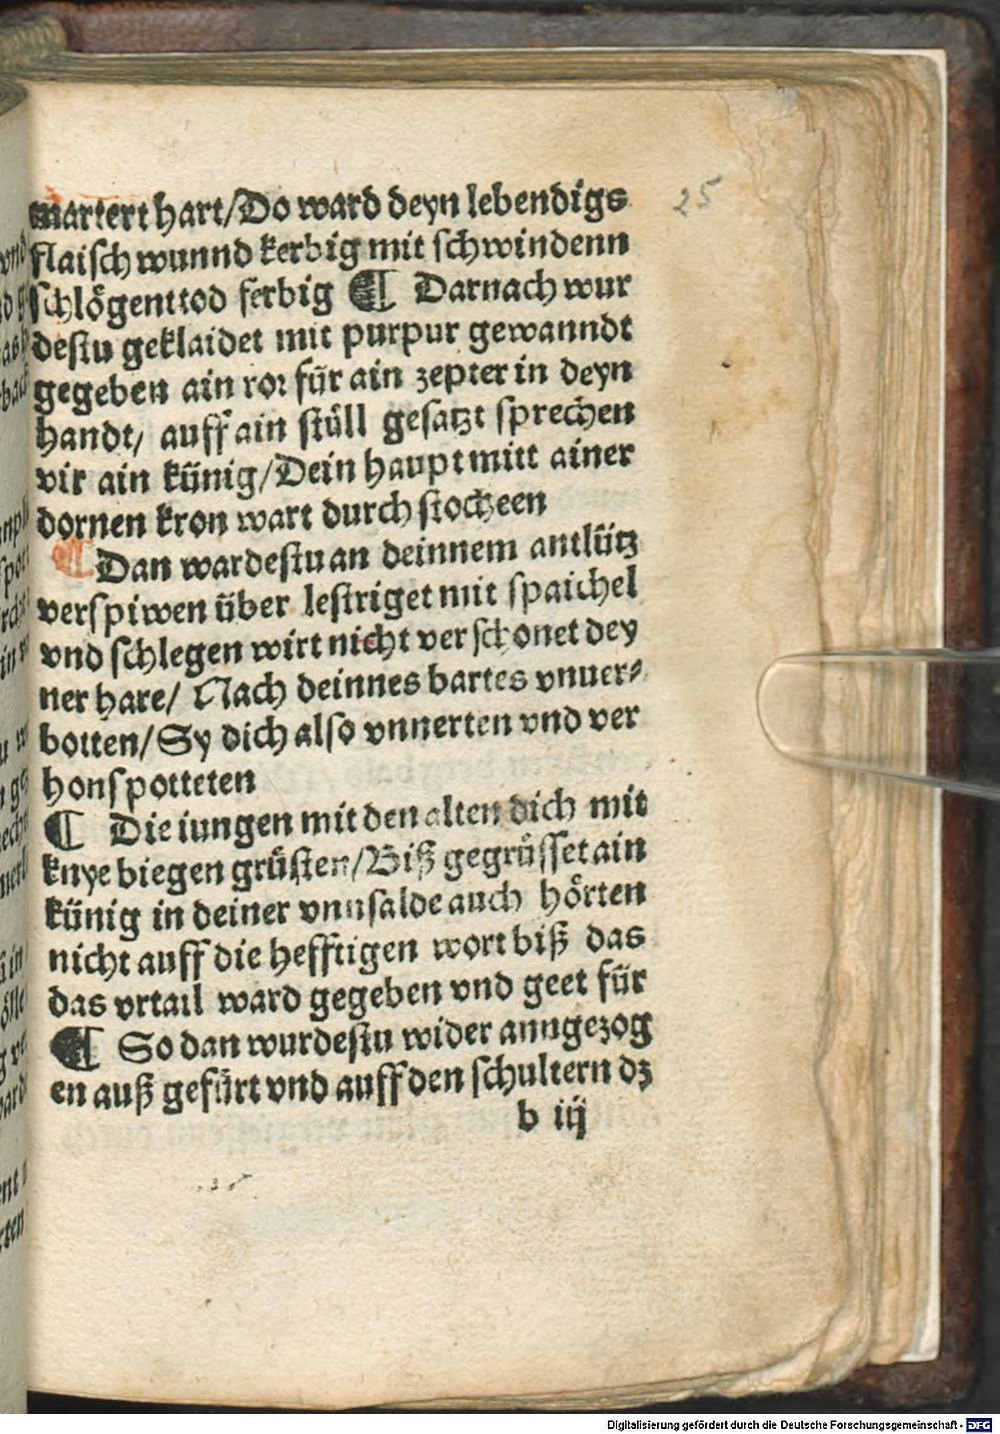 martert hart/Do ward deyn lebendigs
flaisch wunnd kerbig mit schwindenn
schlögenttod ferbig ¶ Darnach wur
destu geklaidet mit purpur gewanndt
gegeben ain ror für ain zepter in deyn
handt/ auff ain stüll gesatzt sprechen
vir ain künig/Dein haupt mitt ainer
dornen kron wart durch stochzeen
¶ Dan wardestu an deinnem antlütz
verspiwen über lestriget mit spaichel
vnd schlegen wirt nicht verschonet dey
ner hare/ Nach deinnes bartes vnuer⸗
botten/Sy dich also vnnerten vnd ver
honspotteten
¶ Die iungen mit den alten dich mit
knye biegen grüsten/Biß gegrüsset ain
künig in deiner vnnsalde auch hörten
nicht auff die hefftigen wort biß das
das vrtail ward gegeben vnd geet für
¶ So dan wurdestu wider anngezog
en auß gefürt vnd auff den schultern dz
b iij
25
Digitalisierung gefördert durch die Deutsche Forschungsgemeinschaft - DFG